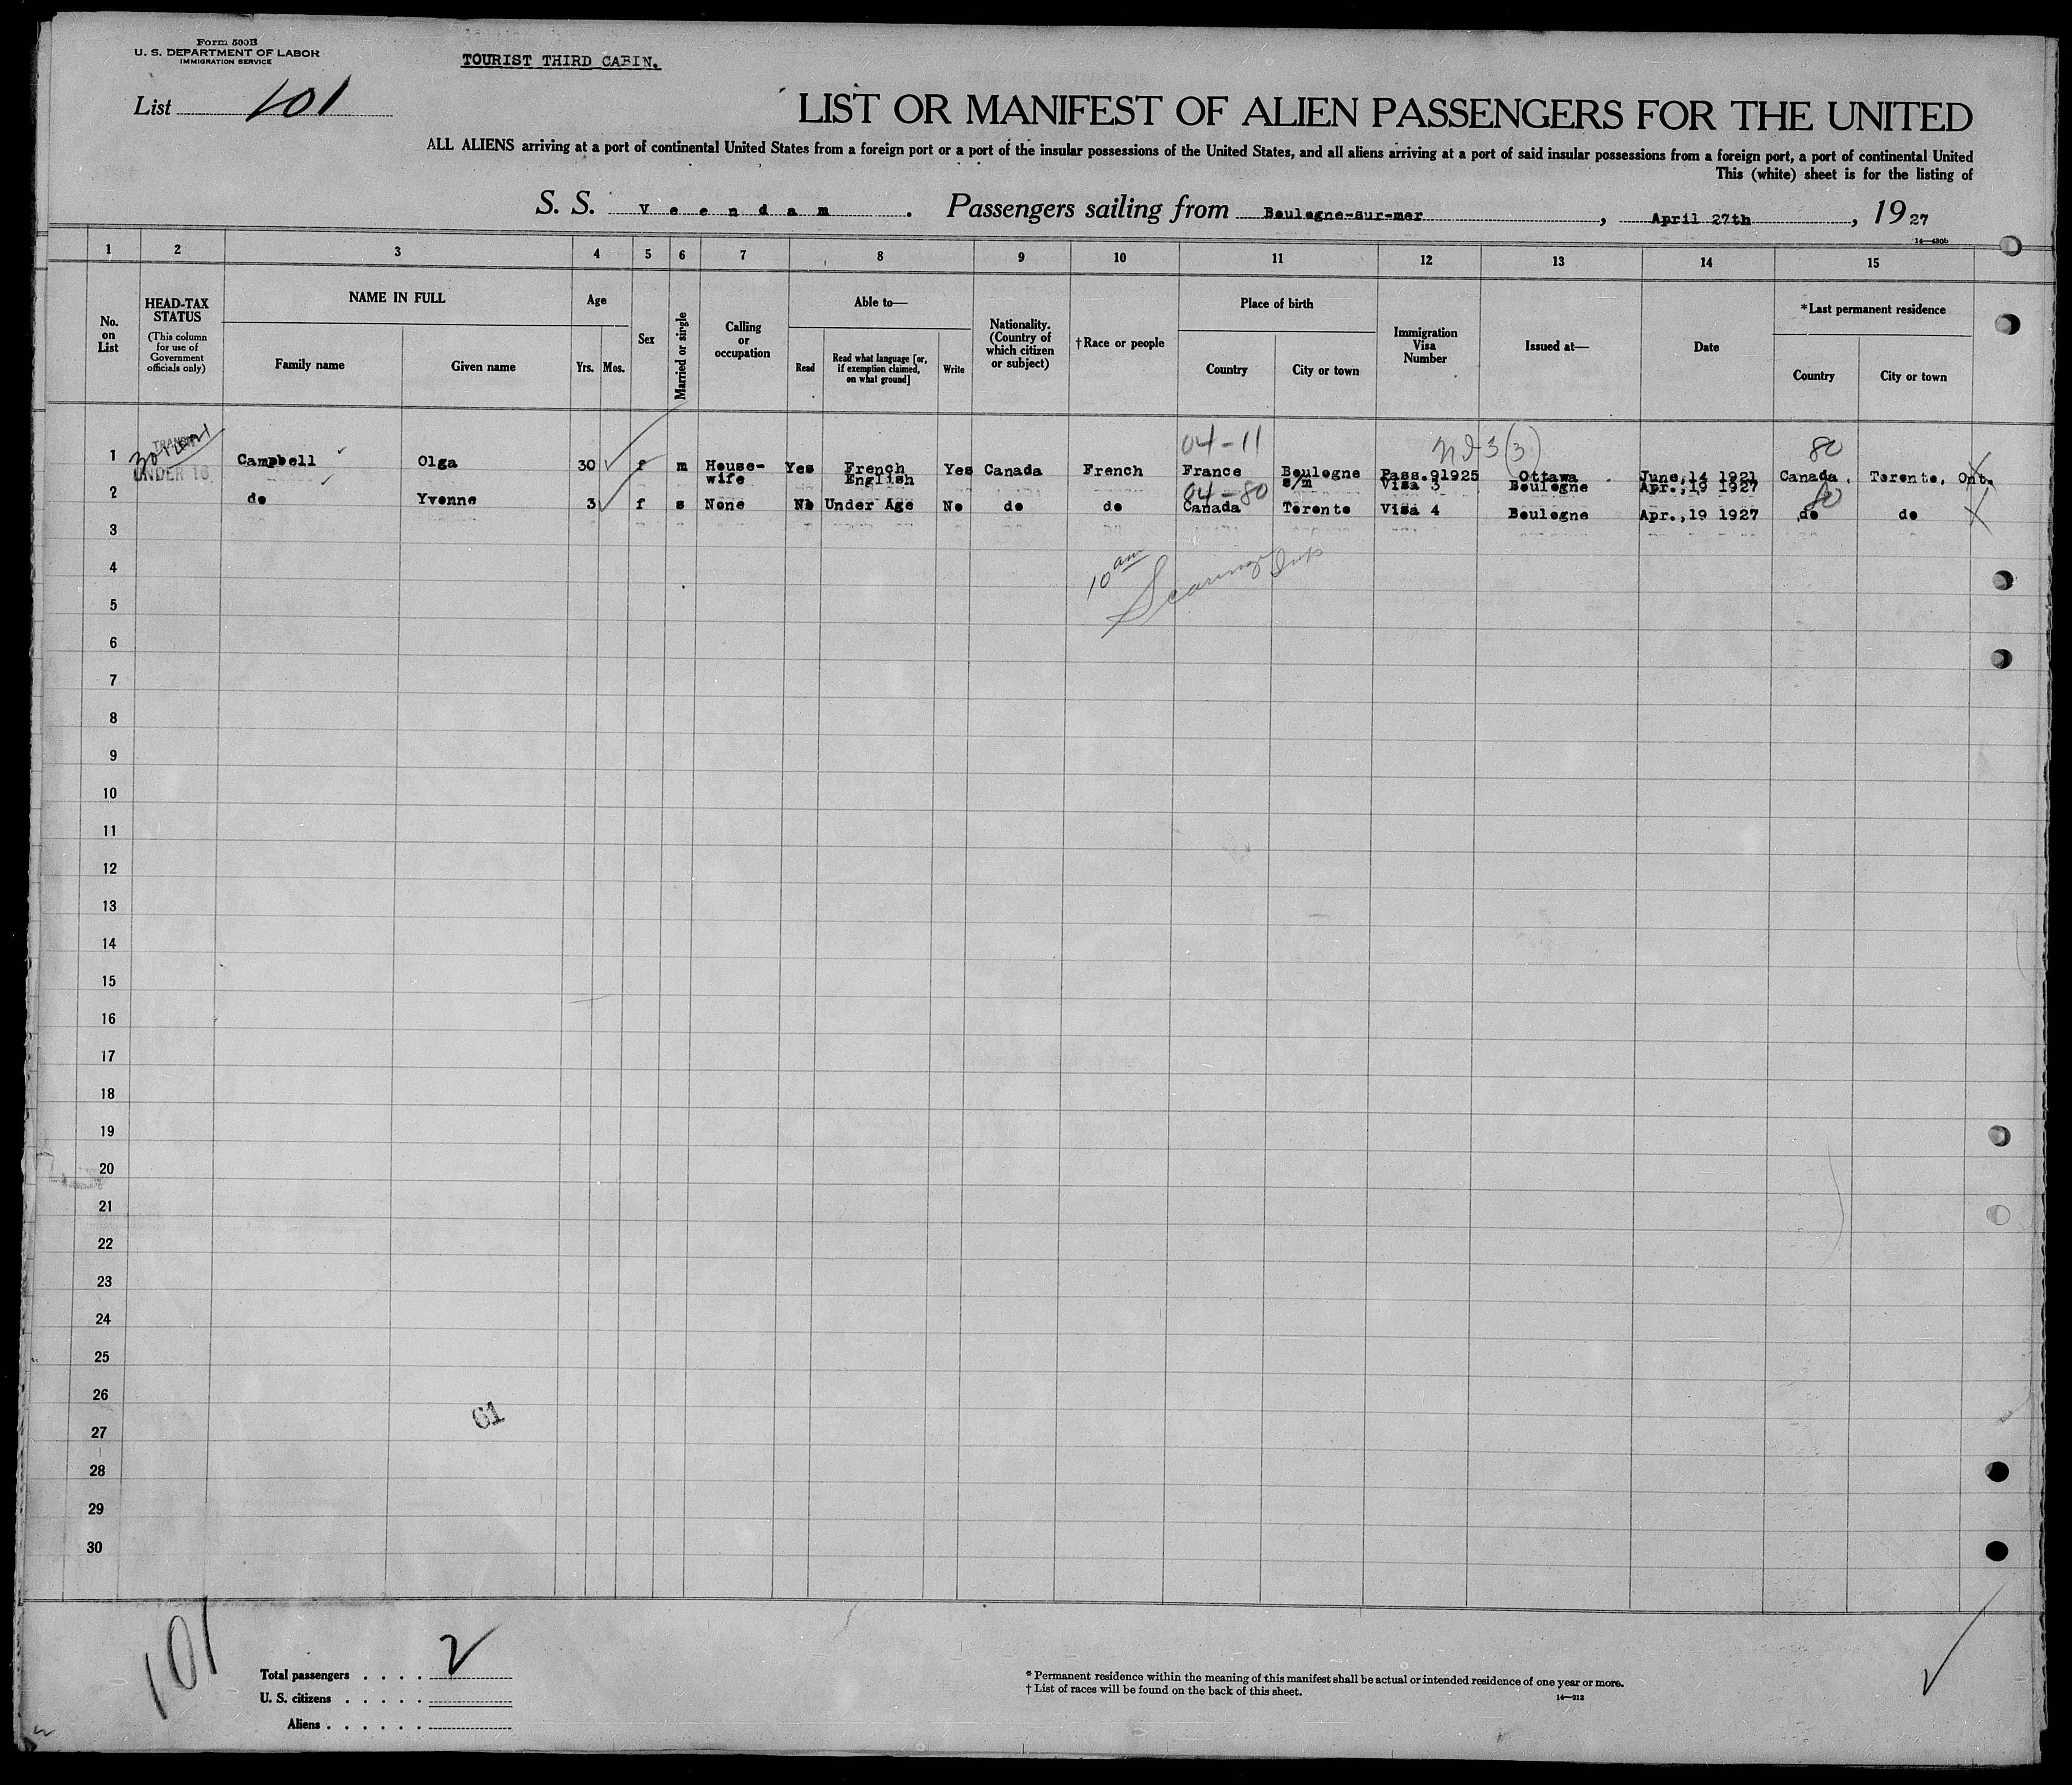 Form 500B
U. S. DEPARTMENT OF LABOR
IMMIGRATION SERVICE
TOURIST THIRD CABIN.
List 101
LIST OR MANIFEST OF ALIEN PASSENGERS FOR THE UNITED
ALL ALIENS arriving at a port of continental United States from a foreign port or a port of the insular possessions of the United States, and all aliens arriving at a port of said insular possessions from a foreign port, a port of continental United
This (white) sheet is for the listing of
S. S. Veendam. Passengers sailing from Boulogne-sur-mer, April 27th, 1927
14—430b
1 2 3 4 5 6 7 8 9 10 11 12 13 14 15
No. on List
HEAD-TAX STATUS
(This column for use of Government officials only)
NAME IN FULL
Family name
Given name
Age
Yrs. Mos.
Sex
Married or single
Calling or occupation
Able to—
Read
Read what language [or, if exemption claimed, on what ground]
Write
Nationality. (Country of which citizen or subject)
†Race or people
Place of birth
Country
City or town
Immigration Visa Number
Issued at—
Date
*Last permanent residence
Country
City or town
04-11 (3) 80
1 UNDER 16 Campbell Olga 30 f m House-wife Yes French English Yes Canada French France Boulogne s/m Pass.91925 Visa 3 Ottawa Boulogne June,14 1921 Apr.,19 1927 Canada, Toronto, Ont.
04-80 80
2 do Yvonne 3 f s None No Under Age No do do Canada Toronto Visa 4 Boulogne Apr.,19 1927 do do
3
10 am
4
5
6
7
8
9
10
11
12
13
14
15
16
17
18
19
20
21
22
23
24
25
26
61
27
28
29
30
101
Total passengers . . . . 2
U. S. citizens . . . . .
Aliens . . . . . .
* Permanent residence within the meaning of this manifest shall be actual or intended residence of one year or more.
† List of races will be found on the back of this sheet.
14—213